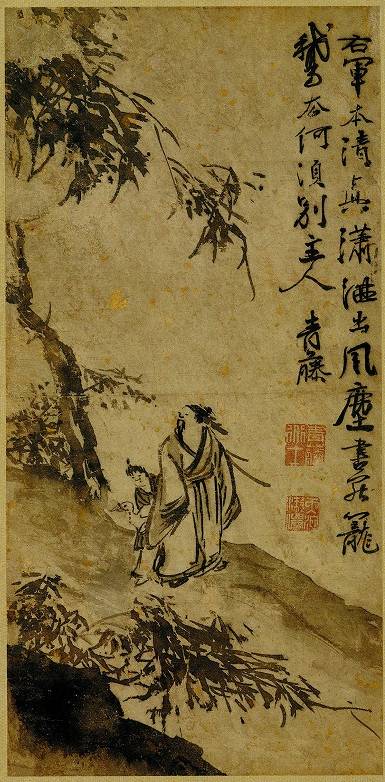 右軍本清真瀟灑出風塵書罷籠
鵝去何須別主人 青藤